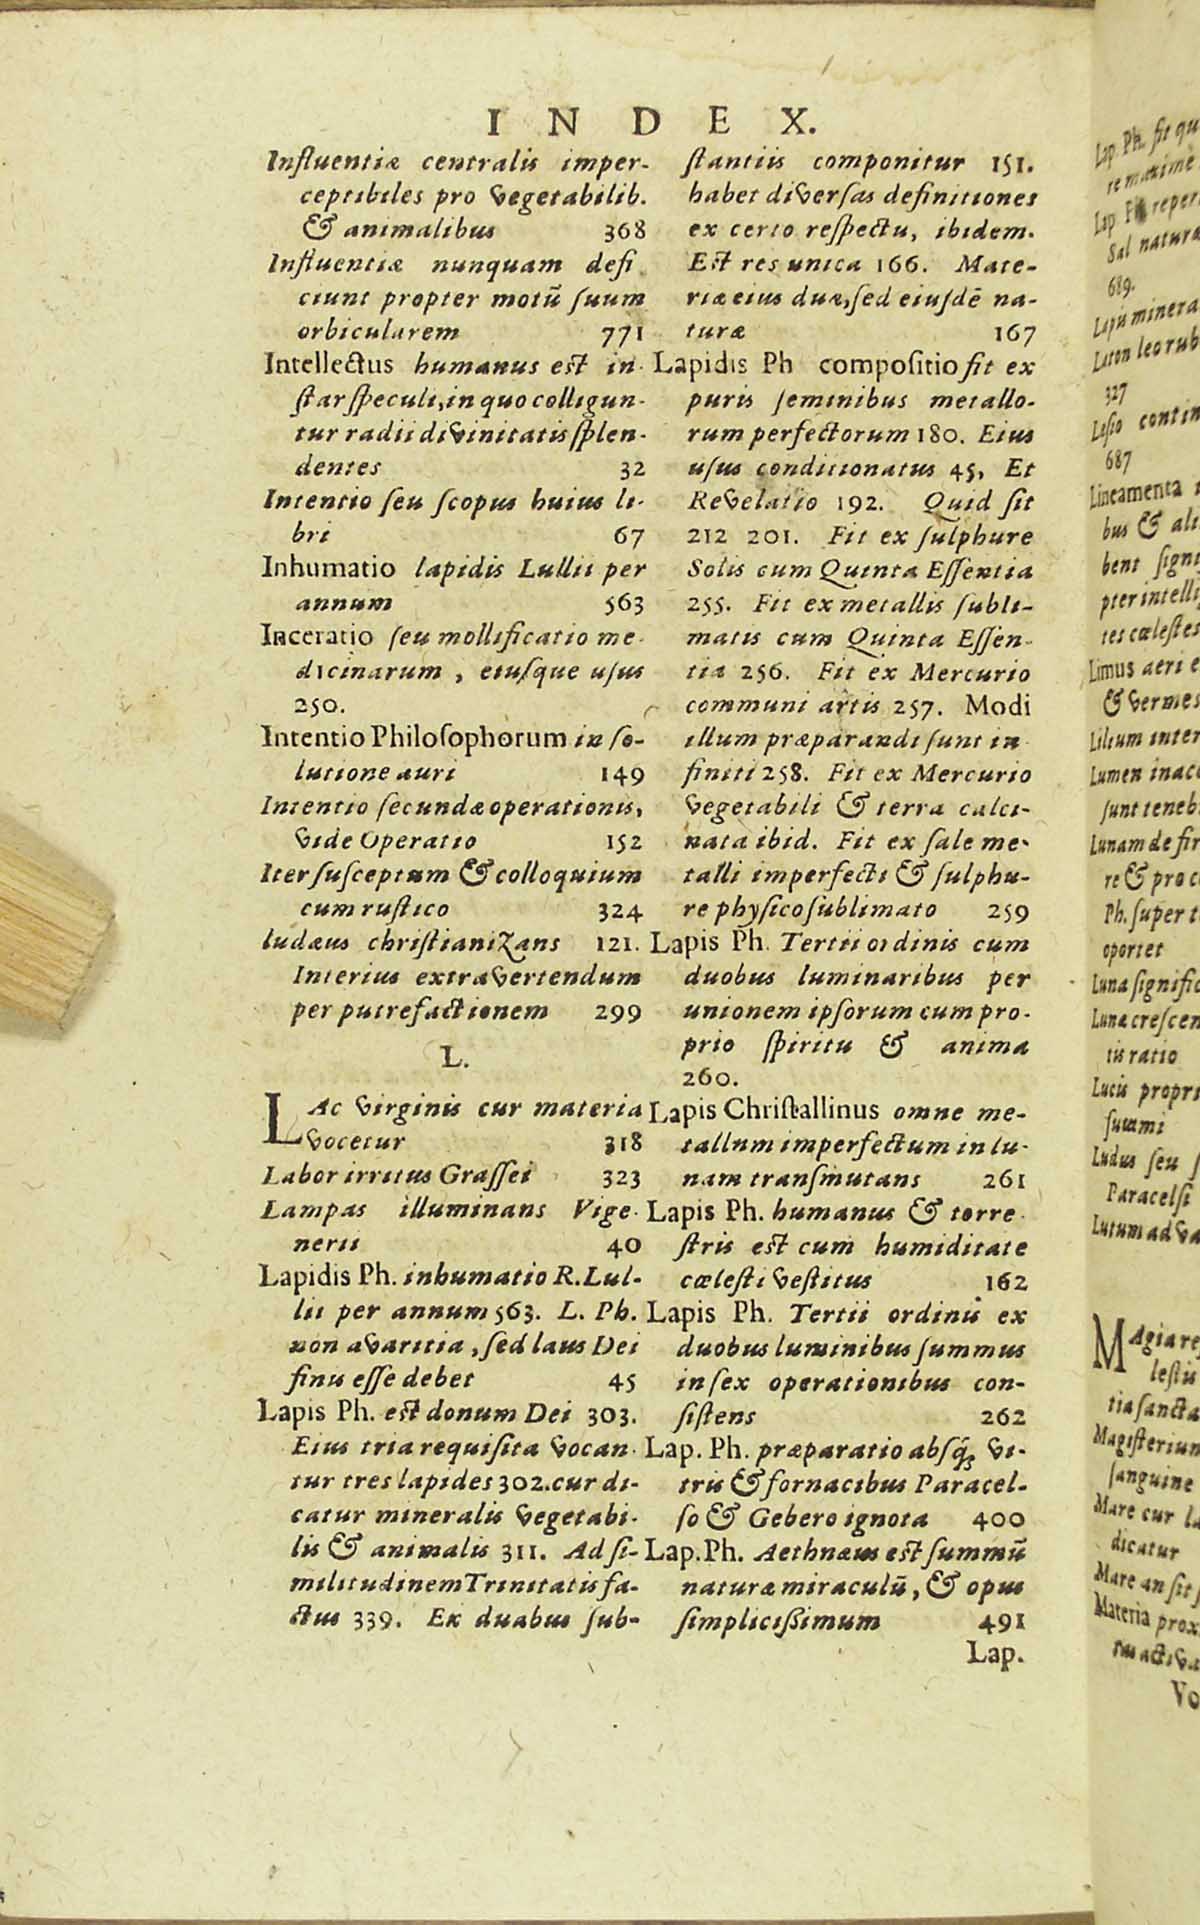 INDEX.
Influentiæ centralis imper-
ceptibiles pro vegetabilib.
& animalibus 368
Influentiæ nunquam defi
ciunt propter motũ ſuum
orbicularem 771
Intellectus humanus est in-
ſtar ſpeculi, in quo colligun-
tur radii divinitatis ſplen-
dentes 32
Intentio ſeu ſcopus huius li-
bri 67
Inhumatio lapidis Lullii per
annum 563
Inceratio ſeu mollificatio me-
dicinarum, eiuſque uſus
250.
Intentio Philoſophorum in ſo-
lutione auri 149
Intentio ſecundæ operationis,
vide Operatio 152
Iter ſuſceptum & colloquium
cum ruſtico 324
Iudæus chriſtianizans 121.
Interius extravertendum
per putrefactionem 299
L.
LAc virginis cur materia
vocetur 318
Labor irritus Graſſei 323
Lampas illuminans Vige-
nerii 40
Lapidis Ph. inhumatio R. Lul-
lii per annum 563. L. Ph.
non avaritia, ſed laus Dei
finis eſſe debet 45
Lapis Ph. est donum Dei 303.
Eius tria requiſita vocan-
tur tres lapides 302. cur di-
catur mineralis vegetabi-
lis & animalis 311. Ad ſi-
militudinem Trinitatis fa-
ctus 339. Ex duabus ſub-
ſtantiis componitur 151.
habet diverſas definitiones
ex certo reſpectu, ibidem.
Est res unica 166. Mate-
riæ eius duæ, ſed eiuſdẽ na-
turæ 167
Lapidis Ph compoſitio fit ex
puris ſeminibus metallo-
rum perfectorum 180. Eius
uſus conditionatus 45, Et
Revelatio 192. Quid ſit
212 201. Fit ex ſulphure
Solis cum Quinta Eſſentia
255. Fit ex metallis ſubli-
matis cum Quinta Eſſen-
tia 256. Fit ex Mercurio
communi artis 257. Modi
illum præparandi ſunt in
finiti 258. Fit ex Mercurio
vegetabili & terra calci-
nata ibid. Fit ex ſale me-
talli imperfecti & ſulphu-
re phyſico ſublimato 259
Lapis Ph. Tertii ordinis cum
duobus luminaribus per
unionem ipſorum cum pro-
prio ſpiritu & anima
260.
Lapis Chriſtallinus omne me-
tallum imperfectum in lu-
nam tranſmutans 261
Lapis Ph. humanus & terre
ſtris est cum humiditate
cœleſti veſtitus 162
Lapis Ph. Tertii ordinis ex
duobus luminibus ſummus
in ſex operationibus con-
ſiſtens 262
Lap. Ph. præparatio abſq́; vi-
tris & fornacibus Paracel-
ſo & Gebero ignota 400
Lap. Ph. Aethnæus est ſummũ
naturæ miraculũ, & opus
ſimpliciſſimum 491
Lap.
Lap. Ph. fit qu
re maxime
Lap reper
Sal natura
689.
Lapis minera
Laton leo rub
327
Leſio contin
687
Lineamenta
bus & ali
bent ſigni
pter intelli
tes cœleſtes
Limus aeri e
& vermes
Lilium inter
Lumen inacc
ſunt tenebr
Lunam de fir
re & proc
Ph. ſuper t
oportet
Luna ſignific
Lunæ creſcen
tis ratio
Lucis propri
ſummi
Ludus ſeu
Paracelſi
Lutum ad va
MAgia reſ
leſtis
tia ſancta
Magiſterium
ſanguine
Mare cur la
dicatur
Mare an ſit
Materia prox
Vo